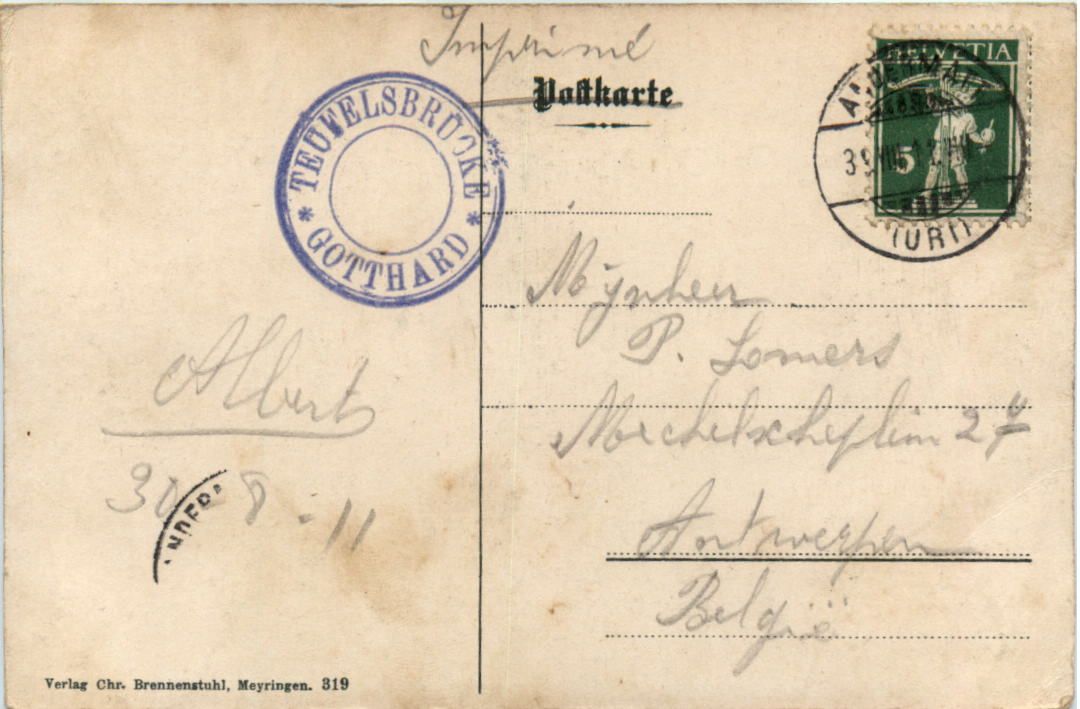 Imprimé
Postkarte
HELVETIA
5
ANDERMATT
(URI)
* TEUFELSBRÜCKE *
GOTTHARD
Mijnheer
P. Somers
27
Antwerpen
België
Albert
30 - 8 - 11
ANDER
Verlag Chr. Brennenstuhl, Meyringen. 319